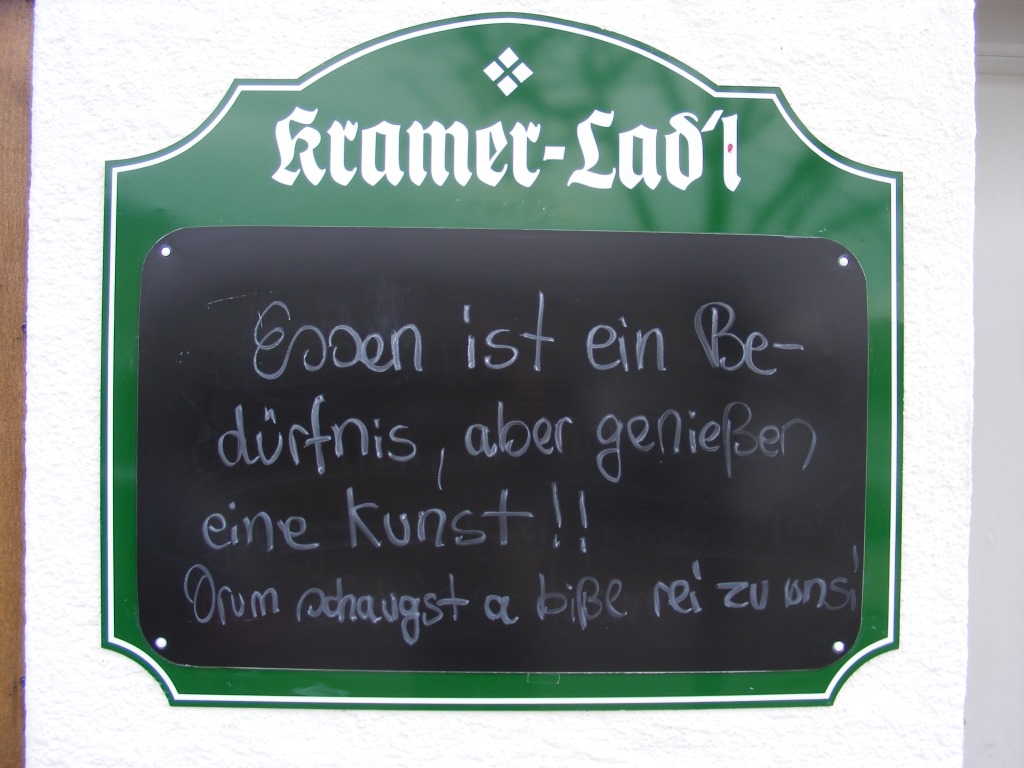 Kramer-Lad'l
Essen ist ein Be-
dürfnis, aber genießen
eine Kunst!!
Drum schaugst a bißl rei zu uns!